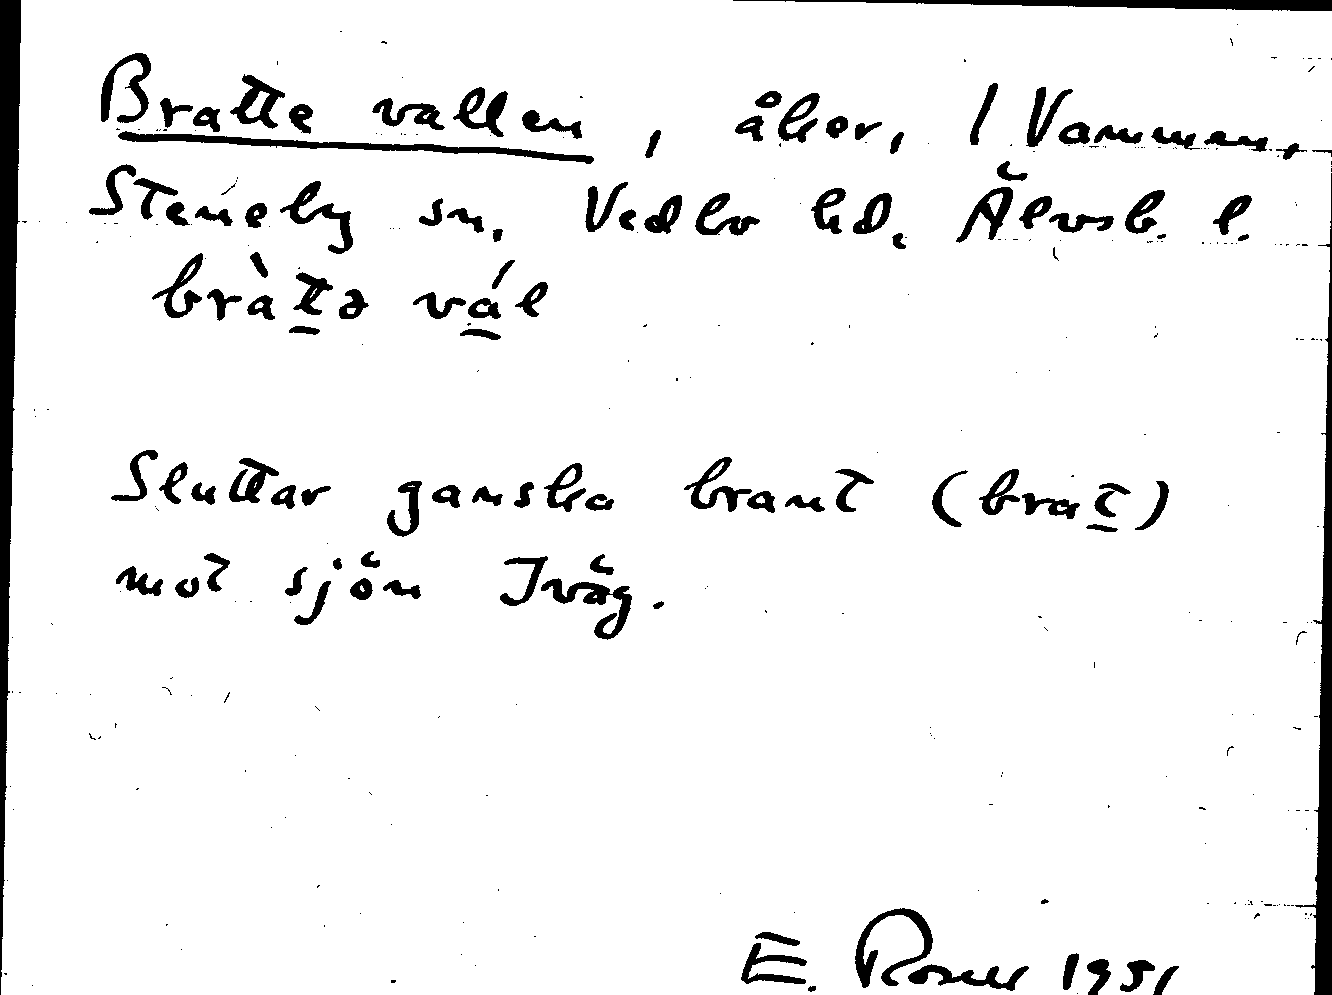 Bratte vallen, åker, 1 Vammen,
Steneby sn, Vedbo hd. Älvsb. l.
bràt̲ə vá̲l
Sluttar ganska brant (brat̲)
mot sjön Iväg.
E. 1951